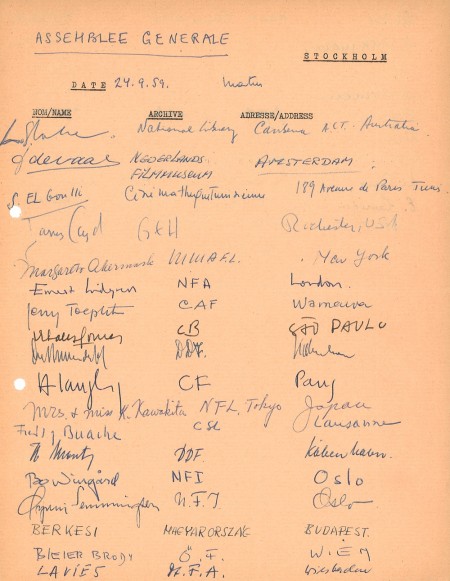 ASSEMBLEE GENERALE
STOCKHOLM
DATE 24.9.59. matin
NOM/NAME ARCHIVE ADRESSE/ADDRESS
National Library Canberra A.C.T. Australia
J de Vaal NEDERLANDS FILMMUSEUM AMSTERDAM
S. EL Goulli Cinémathèque tunisienne 189 Avenue de Paris Tunis
James Card GEH Rochester, USA
Margareta Akermark M.M.A.F.L. New York
Ernest Lindgren NFA London.
Jerzy Toeplitz CAF Warszawa
CB SÃO PAULO
DDF. København
H Langlois CF Paris
Mrs. & Miss K. Kawakita NFL, Tokyo Japan
Freddy Buache CSL Lausanne
DDF. København.
Bo Wingård NFI Oslo
N.F.I. Oslo
BERKESI MAGYARORSZÁG BUDAPEST.
BLEIER BRODY Ö.F. WIEN
LAVIES Wiesbaden